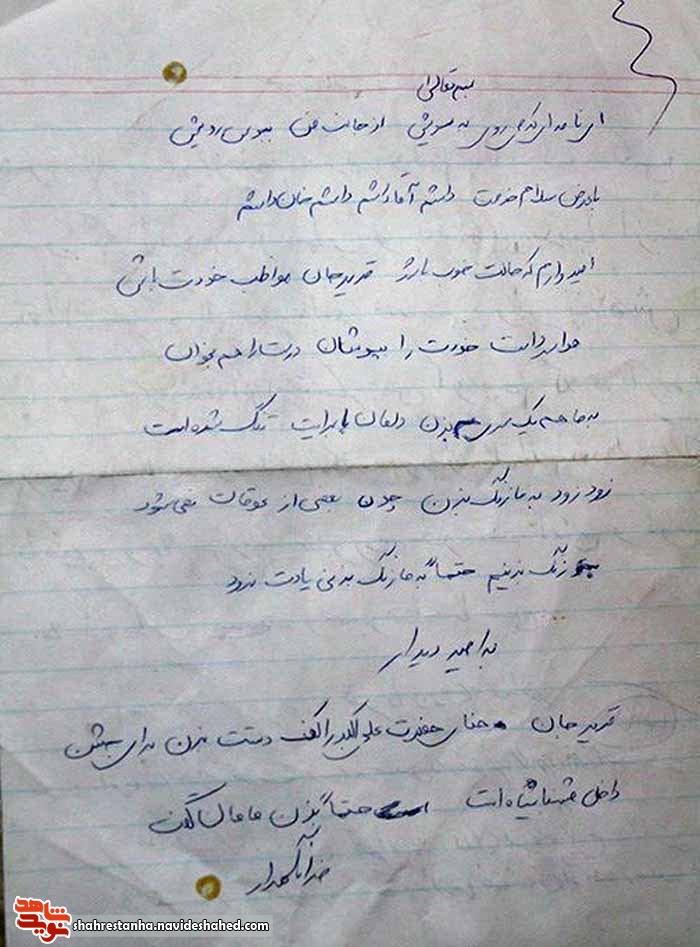 بسمه تعالی
ای نامه ای که می روی به سویش از جانب من ببوس رویش
با عرض سلام خدمت داشم آقا داشم داشم خان داشم
امیدوارم که حالت خوب باشد قدیر جان مواظب خودت باش
هوا سرد است خودت را بپوشان درست را هم بخوان
به ما هم یک سری بزن دلمان برایت تنگ شده است
زود زود به ما زنگ بزن چون بعضی از عوقات نمی شود
زنگ بزنیم حتماً به ما زنگ بزنی یادت نرود
به امید دیدار
قدیر جان حنای حضرت علی اکبر را کف دستت بزن برای جشن
داخل است حتماً بزن مامان گفت
خدانگهدار
نوید شاهد
shahrestanha.navideshahed.com